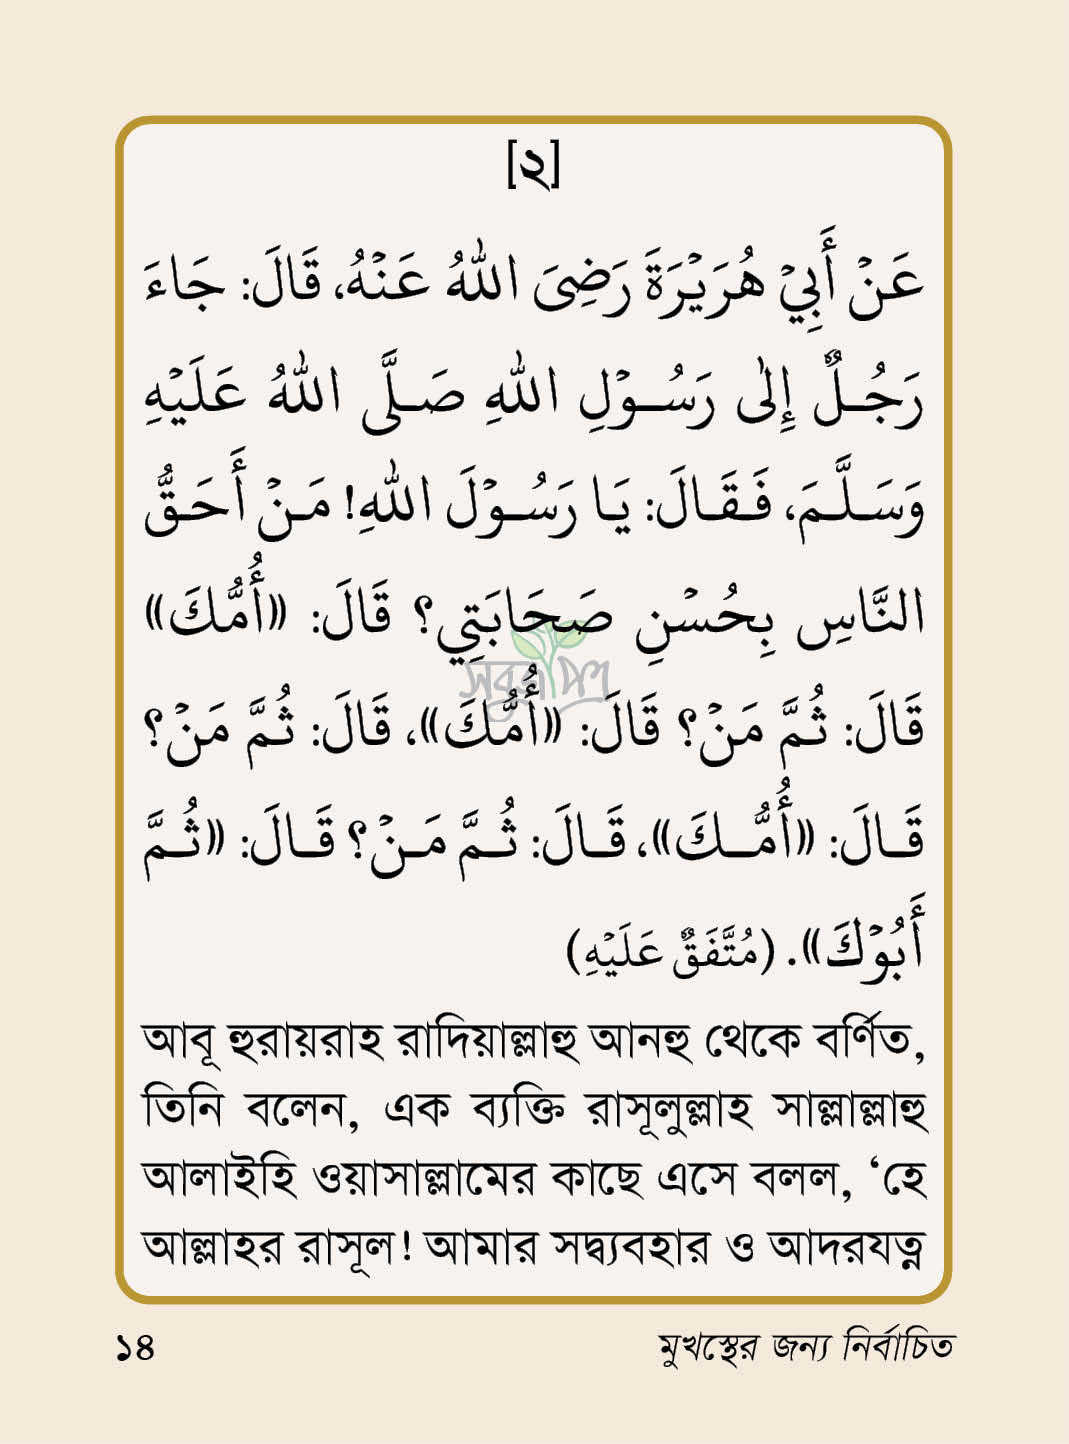 [২]
عَنْ أَبِيْ هُرَيْرَةَ رَضِىَ اللهُ عَنْهُ، قَالَ: جَاءَ
رَجُلٌ إِلٰى رَسُوْلِ اللهِ صَلَّى اللهُ عَلَيْهِ
وَسَلَّمَ، فَقَالَ: يَا رَسُوْلَ اللهِ! مَنْ أَحَقُّ
النَّاسِ بِحُسْنِ صَحَابَتِي؟ قَالَ: «أُمُّكَ»
قَالَ: ثُمَّ مَنْ؟ قَالَ: «أُمُّكَ»، قَالَ: ثُمَّ مَنْ؟
قَالَ: «أُمُّكَ»، قَالَ: ثُمَّ مَنْ؟ قَالَ: «ثُمَّ
أَبُوْكَ». (مُتَّفَقٌ عَلَيْهِ)
সবুজপত্র
আবূ হুরায়রাহ রাদিয়াল্লাহু আনহু থেকে বর্ণিত,
তিনি বলেন, এক ব্যক্তি রাসূলুল্লাহ সাল্লাল্লাহু
আলাইহি ওয়াসাল্লামের কাছে এসে বলল, ‘হে
আল্লাহর রাসূল! আমার সদ্ব্যবহার ও আদরযত্ন
১৪
মুখস্থের জন্য নির্বাচিত